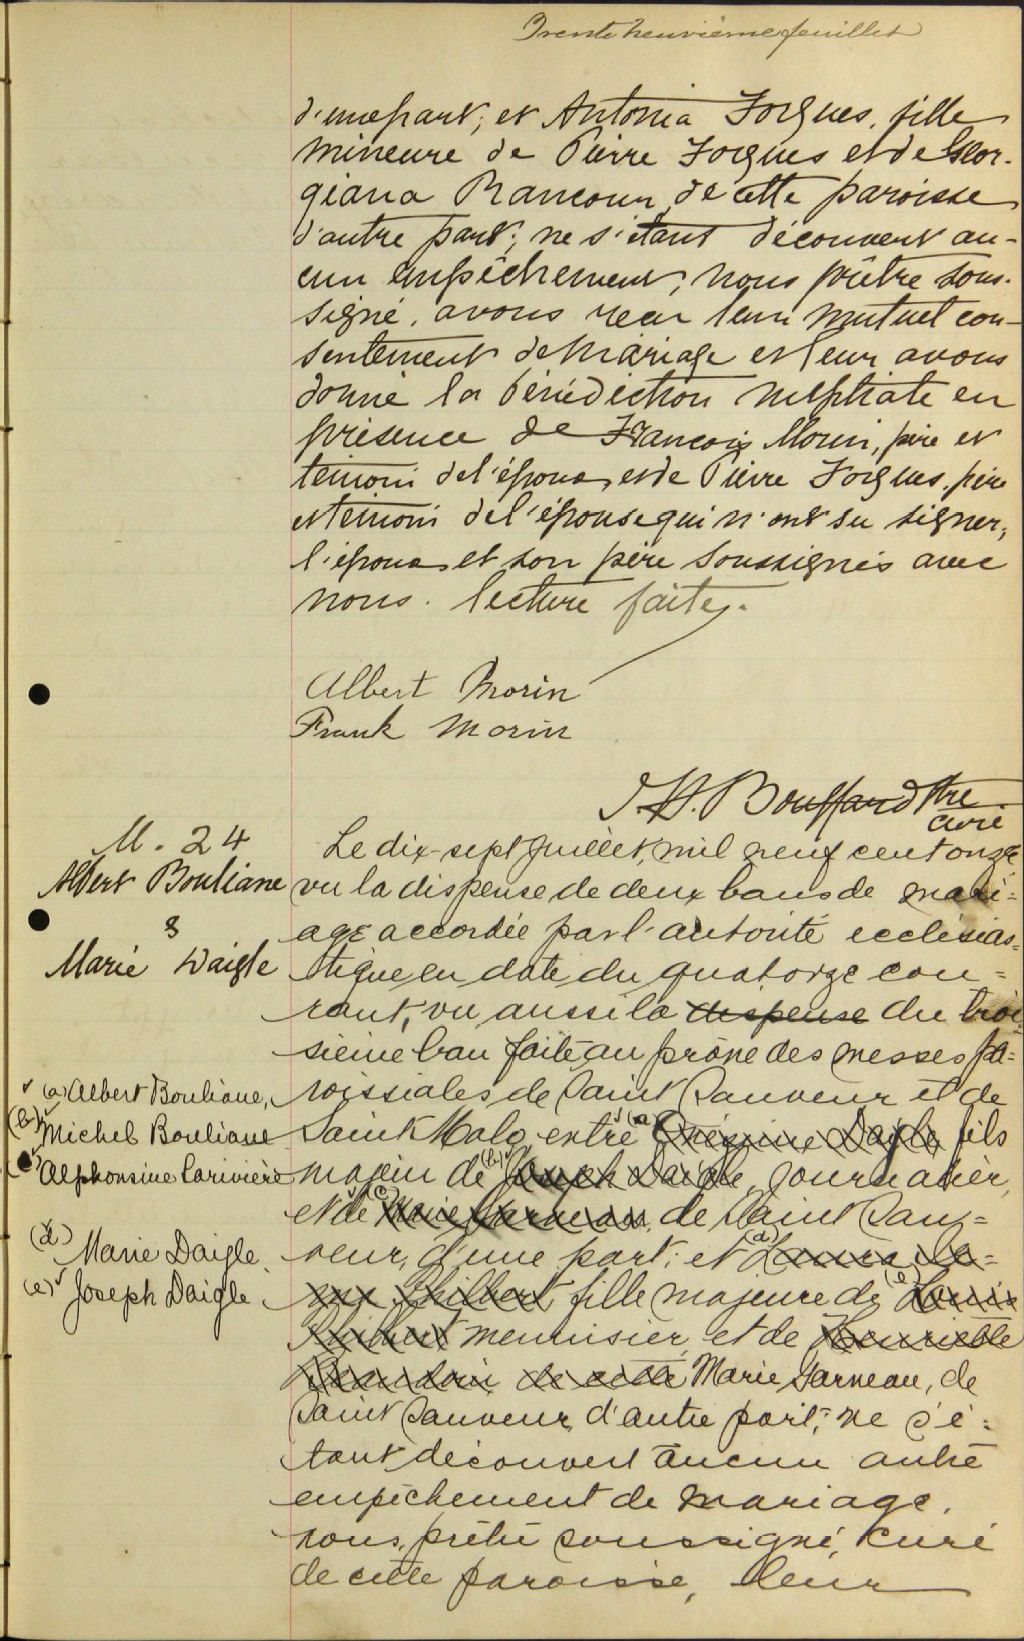 Trente neuvième feuillet
d'une part; et Antonia Forgues, fille
mineure de Pierre Forgues et de Geor-
giana Rancour, de cette paroisse
d'autre part; ne s'étant découvert au-
cun empêchement, nous prêtre sous-
signé, avons reçu leur mutuel con-
sentement de mariage et leur avons
donné la bénédiction nuptiale en
présence de François Morin, père et
témoin de l'époux, et de Pierre Forgues, père
et témoin de l'épouse qui n'ont su signer,
l'époux et son père soussignés avec
nous. lecture faite.
Albert Morin
Frank Morin
J. H. Bouffard Ptre
curé
M. 24
Albert Bouliane
&
Marie Daigle
Le dix-sept juillet, mil neuf cent onze
vu la dispense de deux bans de mari=
age accordée par l'autorité ecclésias=
tique en date du quatorze cou=
rant, vu aussi la dispense du troi
sième ban faite au prône des messes pa=
roissiales de Saint Sauveur et de
Saint Malo, entre (a) Onésime Daigle, fils
majeur de (b) Joseph Daigle, journalier,
et de (c) Marie Garneau, de Saint Sau=
veur, d'une part; et (d)
Philbert fille majeure de (e) Louis
Philbert menuisier, et de Henriette
de cette Marie Garneau, de
Saint Sauveur, d'autre part; ne s'é=
tant découvert aucun autre
empêchement de mariage,
nous, prêtre soussigné, curé
de cette paroisse, leur
(a) Albert Bouliane,
(b) Michel Bouliane
(c) Alphonsine Larivière
(d) Marie Daigle
(e) Joseph Daigle